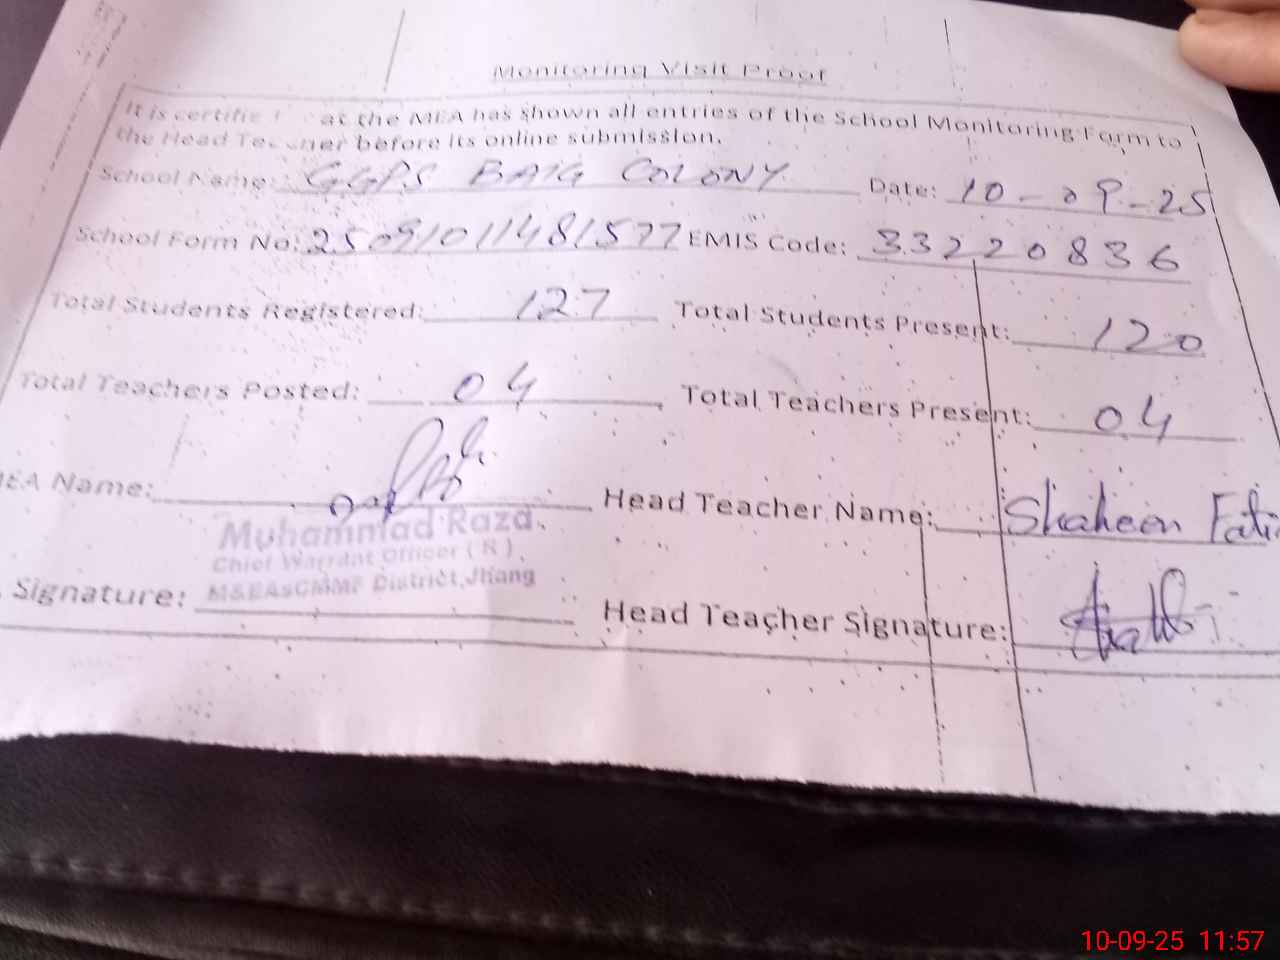 Monitoring Visit Proof
It is certifie at the MEA has shown all entries of the School Monitoring Form to
the Head Teacher before its online submission.
School Name: GGPS BAIG COLONY Date: 10-09-25
School Form No: 25091011481577 EMIS Code: 33220836
Total Students Registered: 127 Total Students Present: 120
Total Teachers Posted: 04 Total Teachers Present: 04
MEA Name: Head Teacher Name: Shaheen Fati
Muhammad Raza
Chief Warrant Officer (R)
M&EAsCMMF District, Jhang
Signature: Head Teacher Signature:
10-09-25 11:57